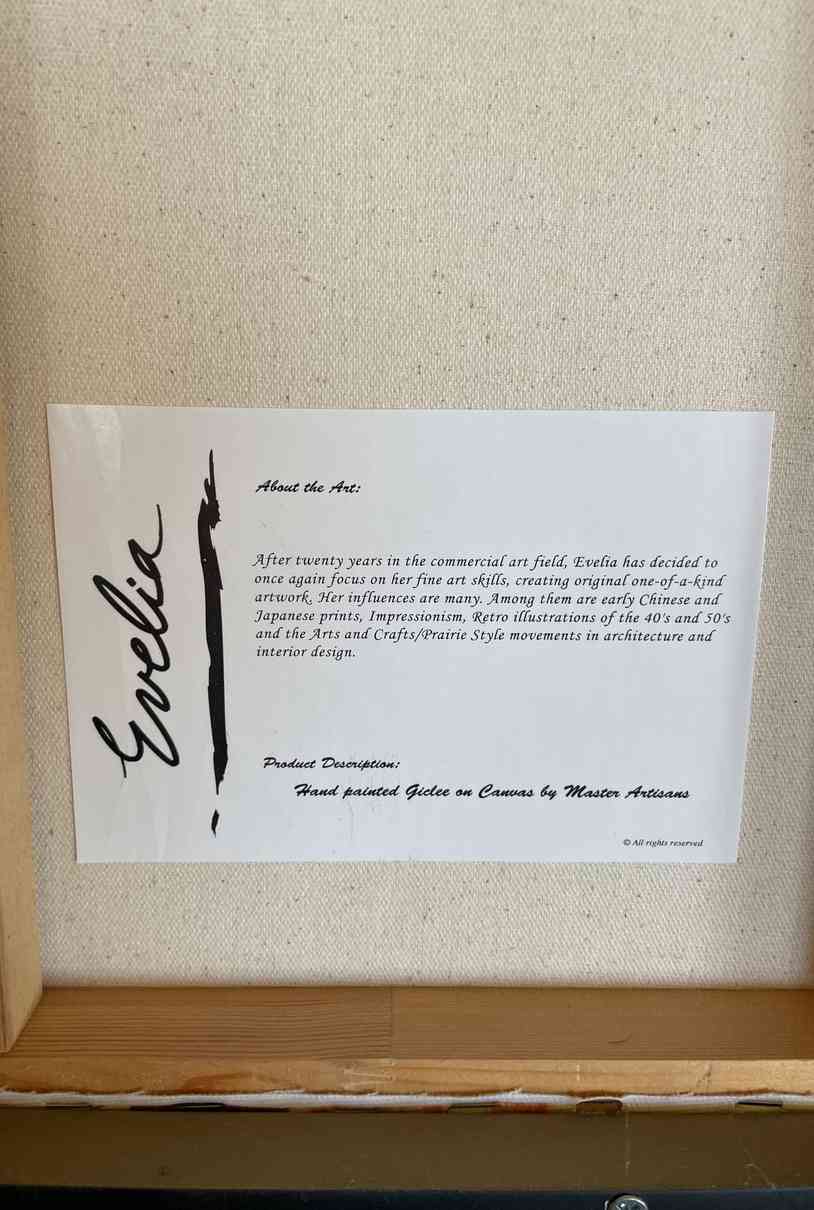 Evelia
About the Art:
After twenty years in the commercial art field, Evelia has decided to
once again focus on her fine art skills, creating original one-of-a-kind
artwork. Her influences are many. Among them are early Chinese and
Japanese prints, Impressionism, Retro illustrations of the 40's and 50's
and the Arts and Crafts/Prairie Style movements in architecture and
interior design.
Product Description:
Hand painted Giclee on Canvas by Master Artisans
© All rights reserved